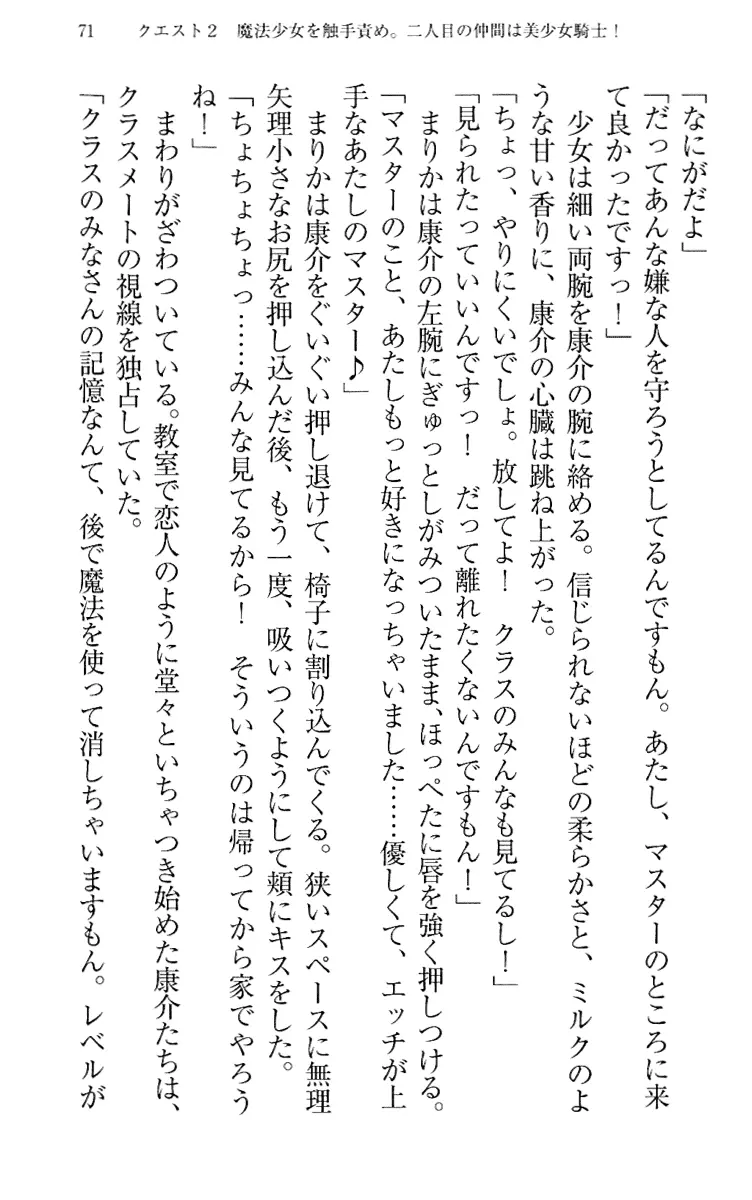 71　クエスト２　魔法少女を触手責め。二人目の仲間は美少女騎士！
「なにがだよ」
「だってあんな嫌な人を守ろうとしてるんですもん。あたし、マスターのところに来
て良かったですっ！」
　少女は細い両腕を康介の腕に絡める。信じられないほどの柔らかさと、ミルクのよ
うな甘い香りに、康介の心臓は跳ね上がった。
「ちょっ、やりにくいでしょ。放してよ！　クラスのみんなも見てるし！」
「見られたっていいんですっ！　だって離れたくないんですもん！」
　まりかは康介の左腕にぎゅっとしがみついたまま、ほっぺたに唇を強く押しつける。
「マスターのこと、あたしもっと好きになっちゃいました……優しくて、エッチが上
手なあたしのマスター♪」
　まりかは康介をぐいぐい押し退けて、椅子に割り込んでくる。狭いスペースに無理
矢理小さなお尻を押し込んだ後、もう一度、吸いつくようにして頬にキスをした。
「ちょちょちょっ……みんな見てるから！　そういうのは帰ってから家でやろう
ね！」
　まわりがざわついている。教室で恋人のように堂々といちゃつき始めた康介たちは、
クラスメートの視線を独占していた。
「クラスのみなさんの記憶なんて、後で魔法を使って消しちゃいますもん。レベルが